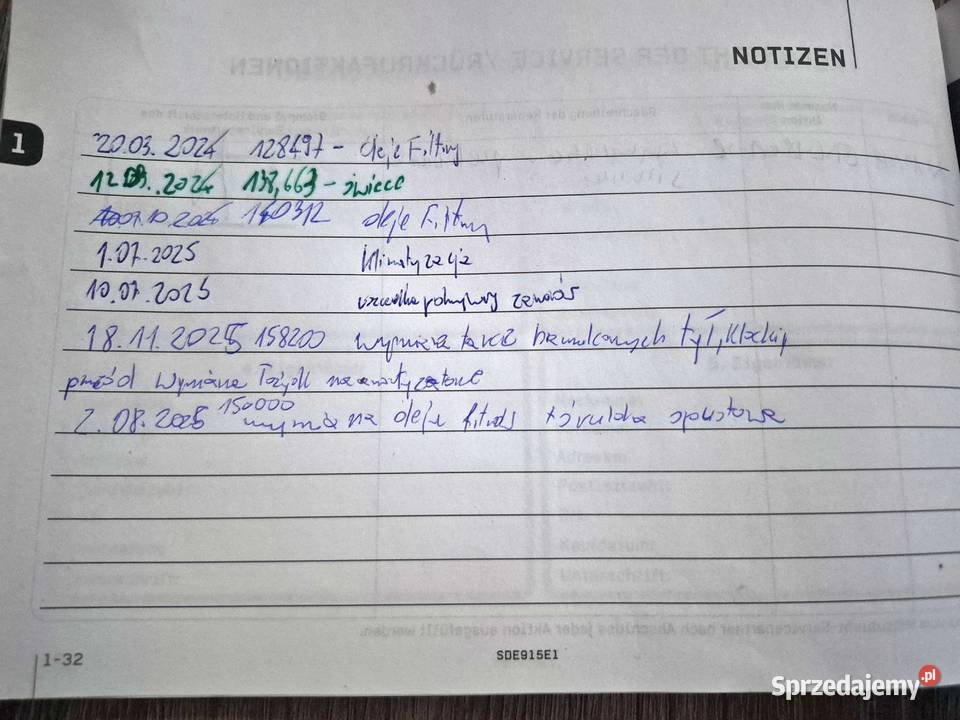 NOTIZEN
1
20.03.2024 128497 - oleje Filtry
12 .2024 138,663 - świece
10.2025 140312 oleje Filtry
1.07.2025 klimatyzacja
10.07.2025 uszczelka pokrywy zaworów
18.11.2025 158200 wymiana tarcz hamulcowych tył, klocki,
przód wymiana
2.08.2025 150000 wymiana oleje filtry + śrubka spustowa
1-32
SDE915E1
Sprzedajemy.pl